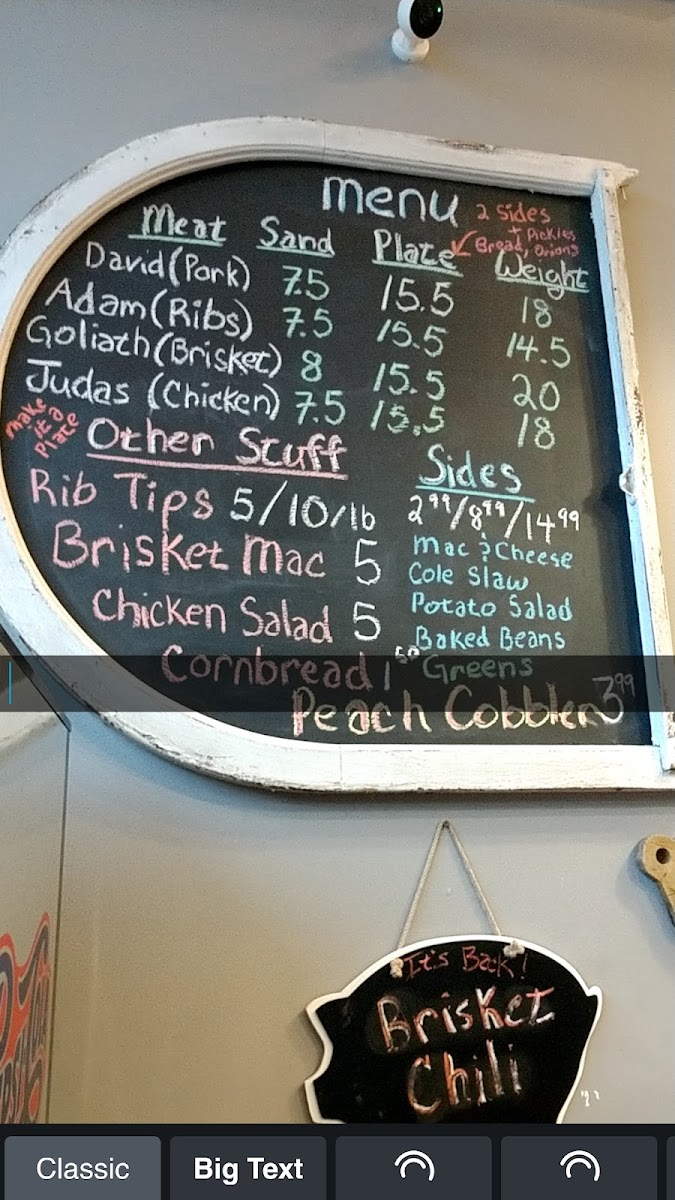 menu 2 sides
+ Pickles
Bread, Onions
Meat Sand Plate Weight
David (Pork) 7.5 15.5 18
Adam (Ribs) 7.5 15.5 14.5
Goliath (Brisket) 8 15.5 20
Judas (Chicken) 7.5 15.5 18
make it a Plate
Other Stuff
Rib Tips 5/10/lb
Brisket Mac 5
Chicken Salad 5
Cornbread 1 50
Sides
2 99/8 99/14 99
Mac & Cheese
Cole Slaw
Potato Salad
Baked Beans
Greens
Peach Cobbler 3 99
It's Back!
Brisket
Chili
Classic Big Text